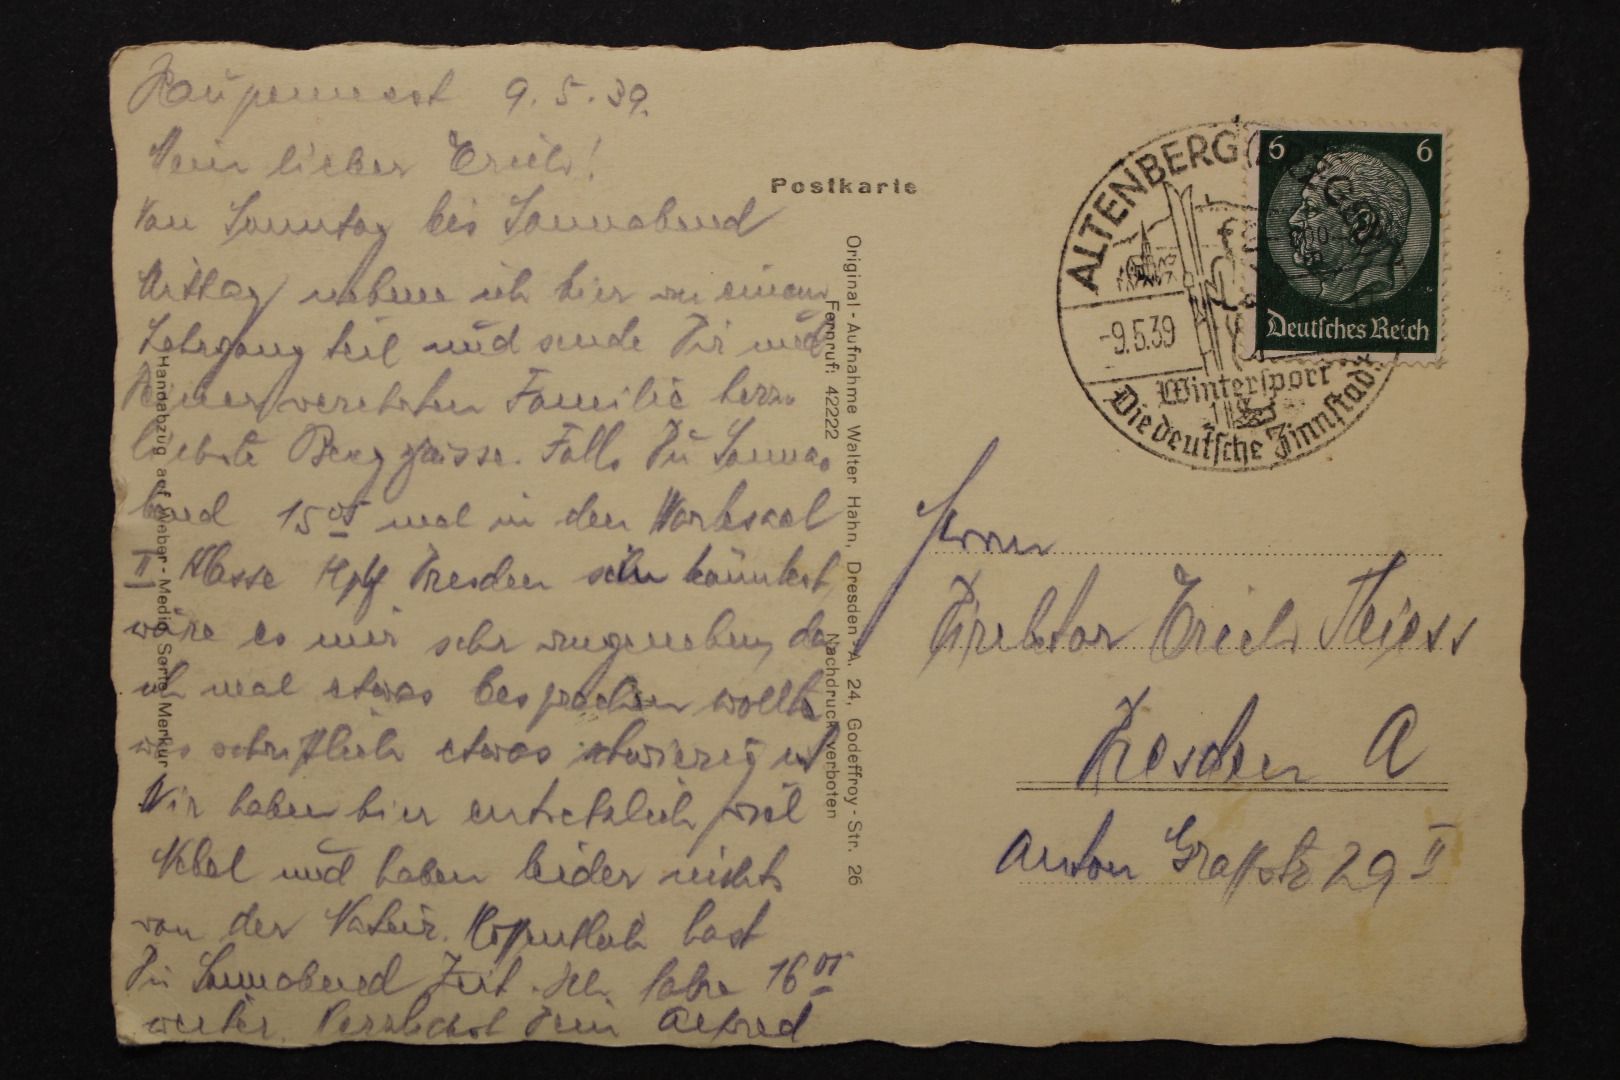 Raupennest 9.5.39.
Mein lieber Erich!
Von Sonntag bis Sonnabend
Mittag nehme ich hier an einem
Lehrgang teil und sende Dir und
Deiner verehrten Familie herz-
lichste Berggrüsse. Falls Du Sonna-
bend 15 05 mal in den Wartesaal
II Klasse Hpbf Dresden sein könntest,
wäre es mir sehr angenehm, da
ich mal etwas besprechen wollte
was schriftlich etwas schwierig ist
Wir haben hier entsetzlich viel
Nebel und haben leider nichts
von der Natur. Hoffentlich hast
Du Sonnabend Zeit. Ich fahre 16 01
weiter. Herzlichst Dein Alfred
Postkarte
Original-Aufnahme Walter Hahn, Dresden-A. 24, Godeffroy-Str. 26
Fernruf: 42222 Nachdruck verboten
Handabzug auf Weber-Media Sorte Merkur
ALTENBERG
-9.5.39
Wintersport
Die deutsche Zinnstadt
6 6
Deutsches Reich
Herrn
Direktor Erich Theiss
Dresden A
Anton Graffstr 29 II